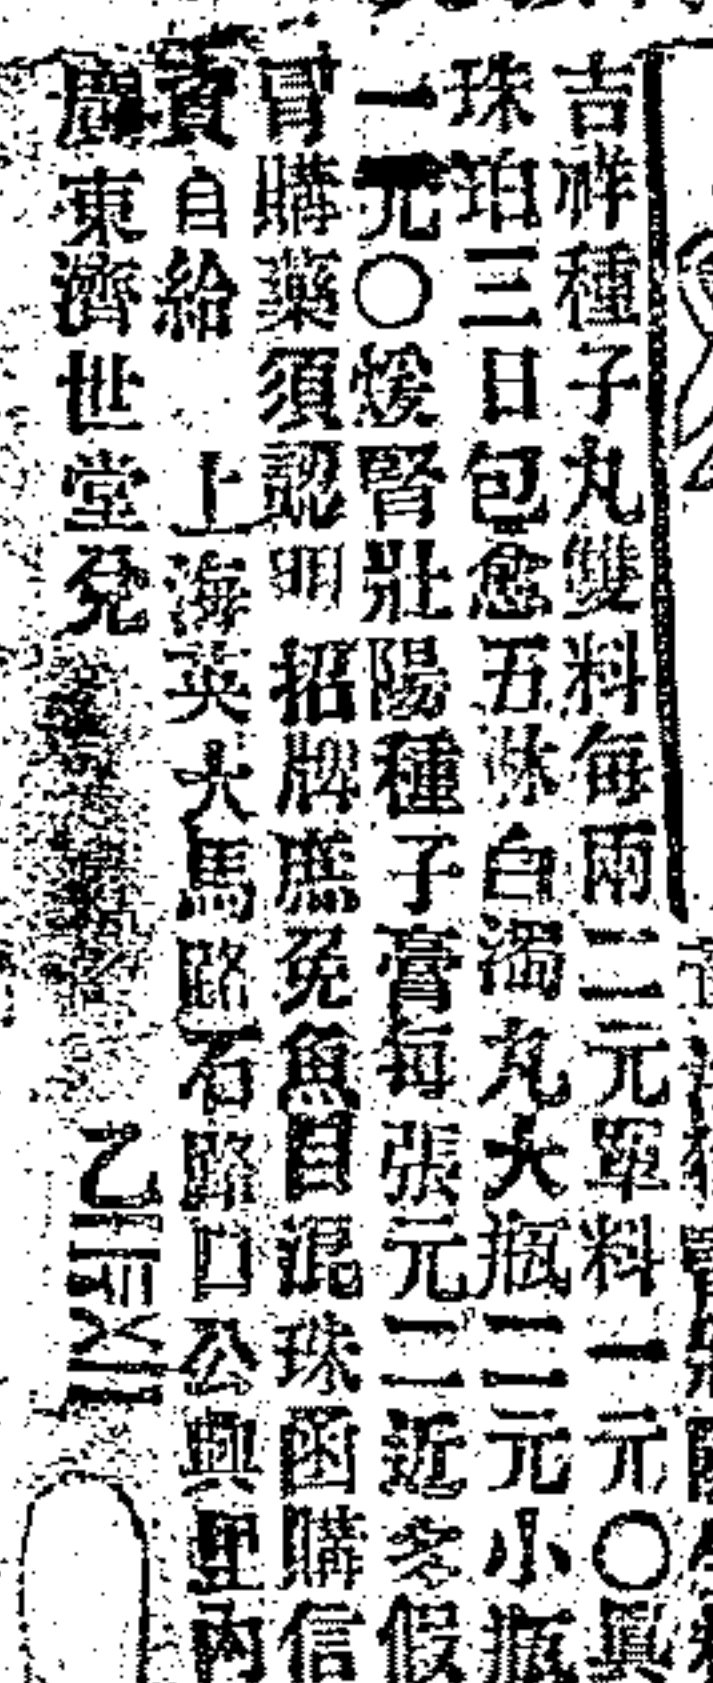 吉祥種子丸雙料每兩二元單料一元〇眞
珠珀三日包愈五淋白濁丸大瓶二元小瓶
一元〇煖腎壯陽種子膏每張元二近多假
冐購藥須認明招牌庶免魚目混珠函購信
資自給 上海英大馬路石路口公興里內
廣東濟世堂兌